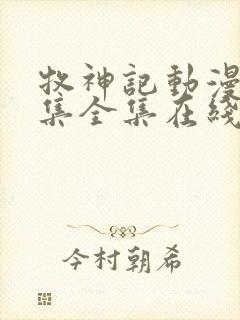 牧神記動漫
集全集在綫
今村朝希